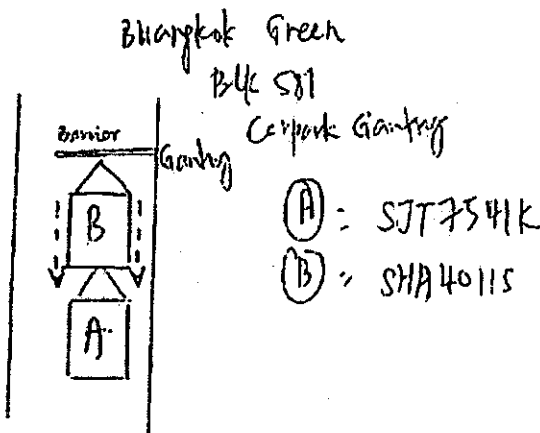 Buangkok Green
Blk 581
Carpark Gantry
Barrier
Gantry
B
A
A : SJT7541K
B : SHA4011S